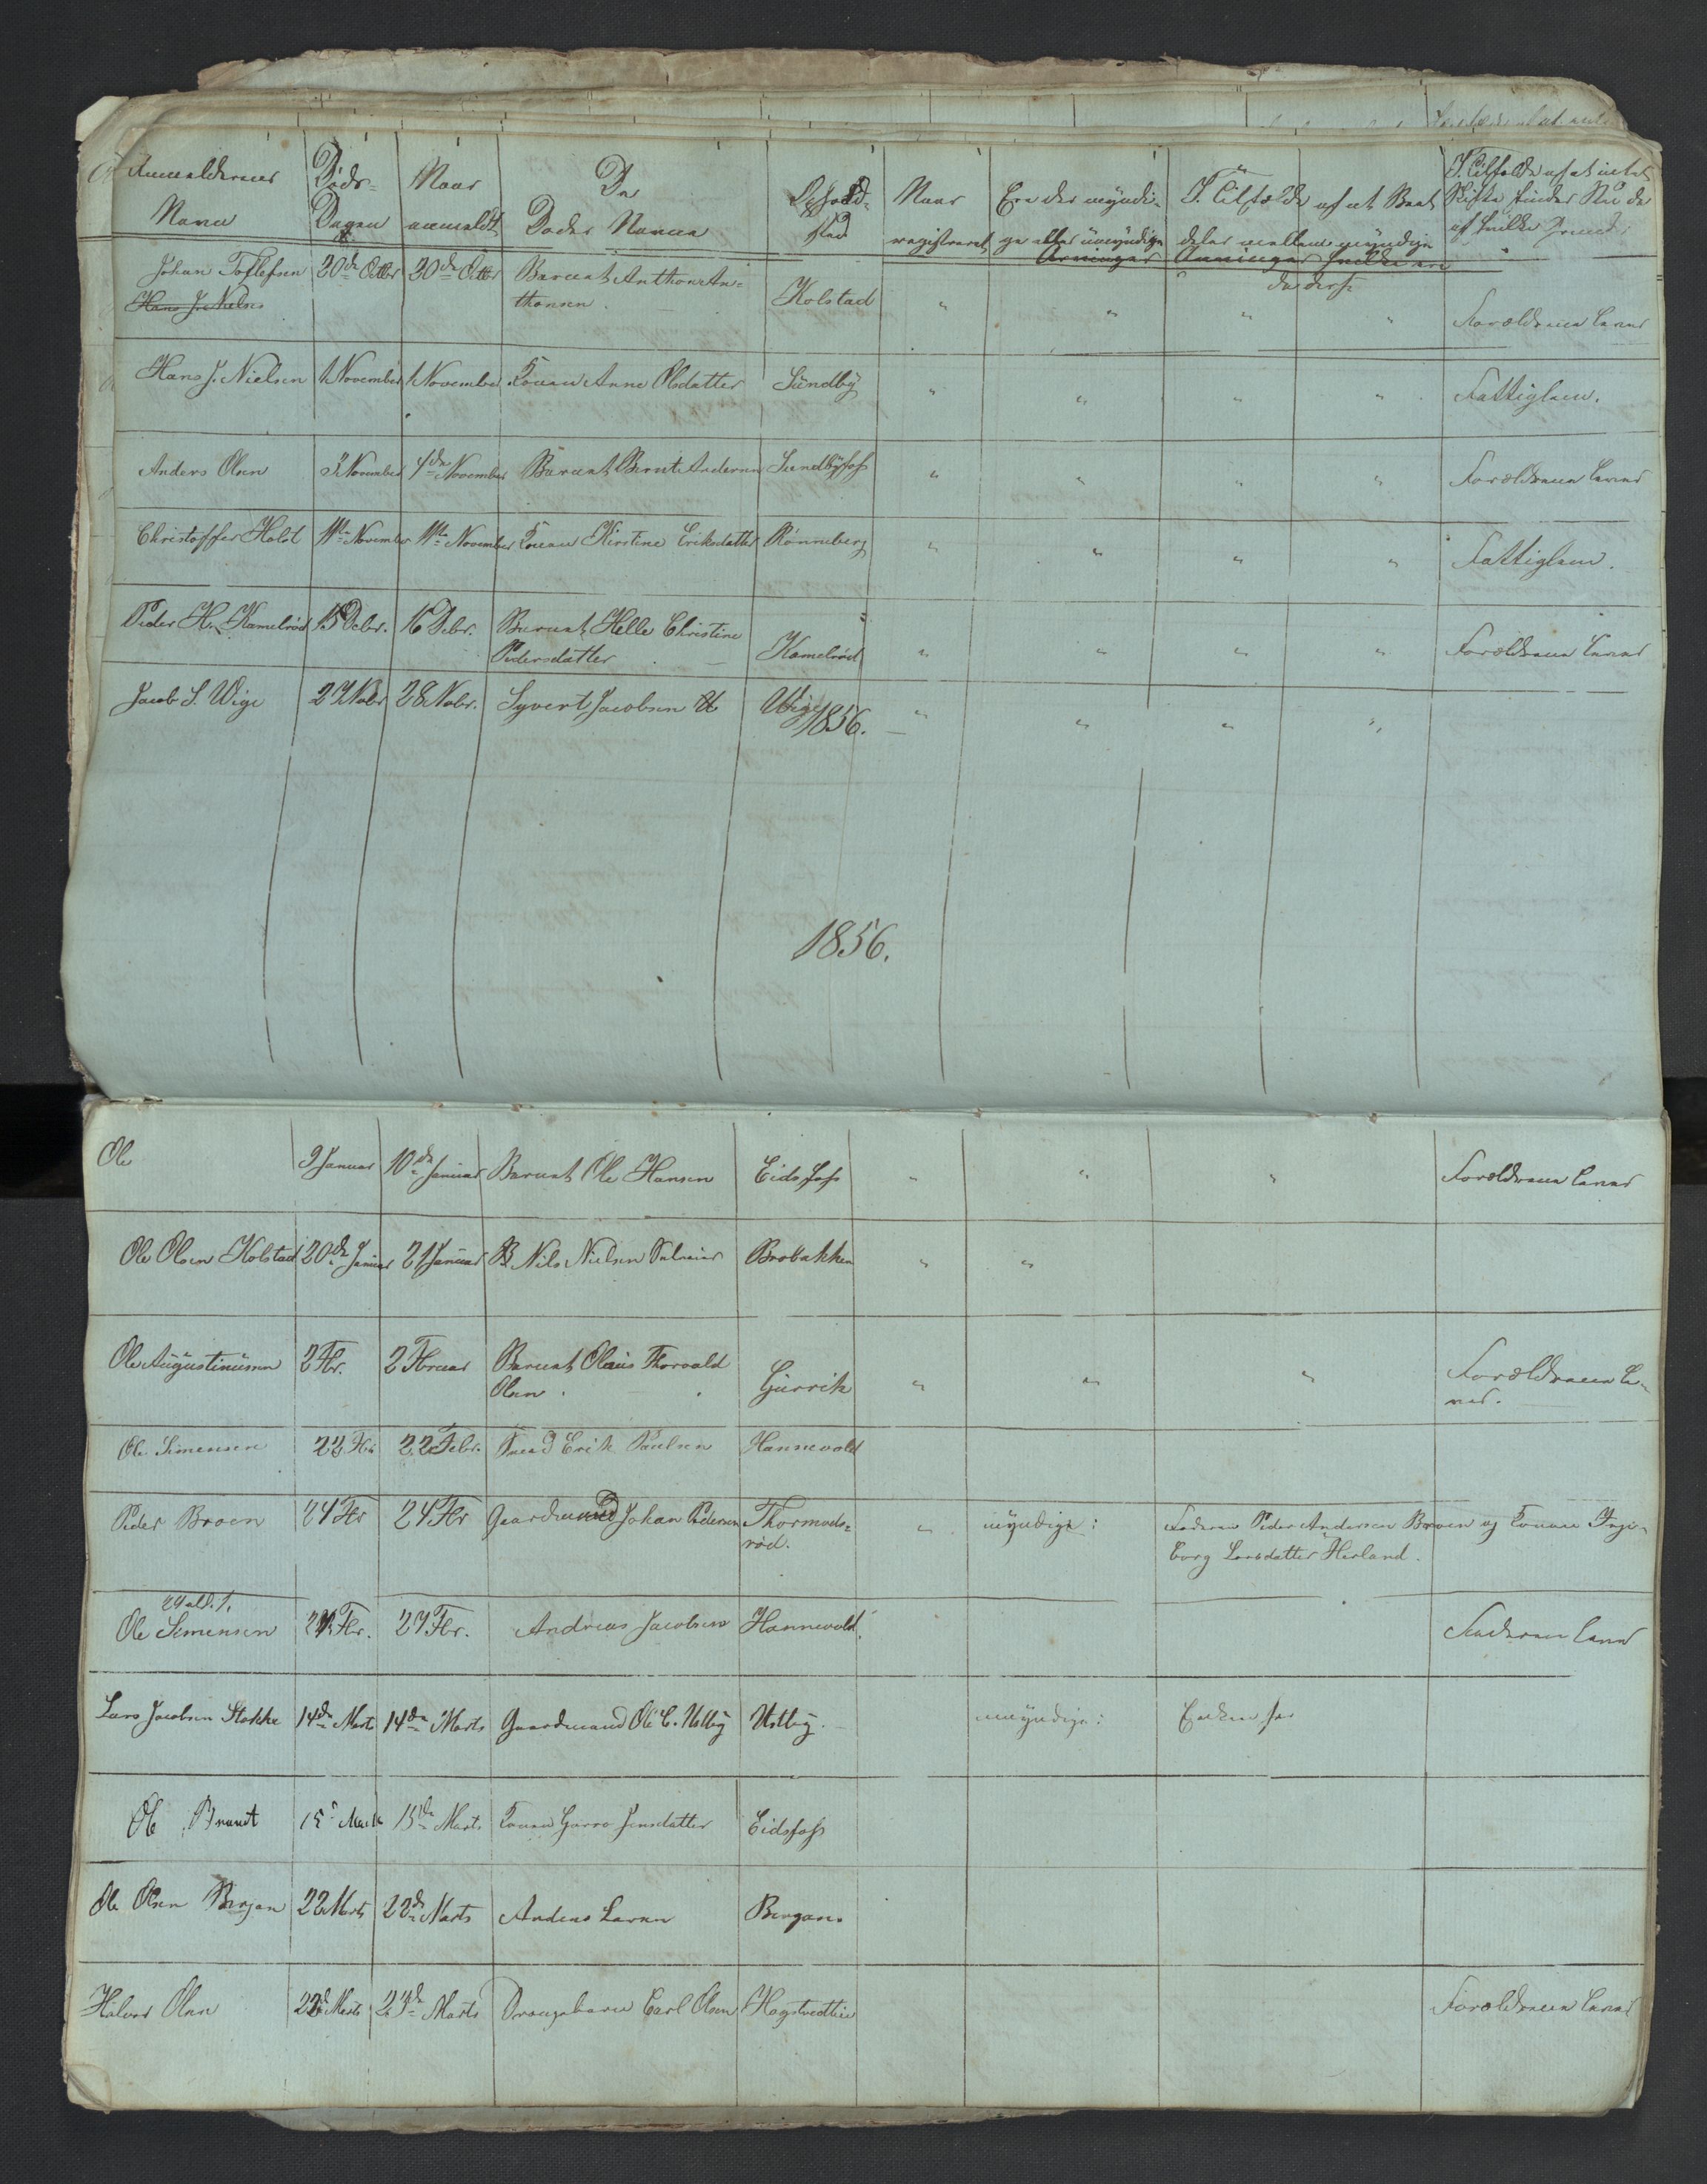 Anmeldernes Navn | Døds-Dagen | Naar anmeldt | De Dødes Navne | Opholdsted | Naar registreret | Ere der myndige eller umyndige Arvinger | I Tilfælde af at Boet deles mellem myndige Arvinger hvilke ere da disse | I Tilfælde af at intet Skifte finder Sted da af hvilke Grunde
Johan Toflefsen | 30de Octbr | 30de Octbr | Barnet Anthon An-
Hans J. Nielsen | thonsen | Kolstad | " | " | " | " | Forældrene lever
Hans J. Nielsen | 1 November | 1 November | Konen Anne Olsdatter | Sundby | " | " | " | " | Fattiglem.
Anders Olsen | 3 November | 4de November | Barnet Bernt Andersen | Sundbyfoss | " | " | " | " | Forældrene lever
Christoffer Hold | 11te November | 11te November | Konen Kirstine Eriksdatter | Rønneberg | " | " | " | " | Fattiglem.
Peder H. Kamelrød | 15 Debr. | 16 Debr. | Barnet Helle Christine
Pedersdatter | Kamelrød | " | " | " | " | Forældrene lever
Jacob S. Wige | 27 Nobr | 28 Nobr. | Syvert Jacobsen | Wige | " | " | " | "
1856.
1856.
Ole | 9 Januar | 10de Januar | Barnet Ole Hansen | Eidsfoss | " | " | " | Forældrene lever
Ole Olsen Kolstad | 20de Januar | 21 Januar | B Nils Nielsen | Brobakken | " | "
Ole Augustinussen | 2 Fbr. | 2 Februar | Barnet Olaus Thorvald
Olsen | Gurrik | " | " | " | Forældrene le-
ver.
Ole Simensen | 22 Fbr | 22 Febr. | Erik Paulsen | Hannevold
Peder Broen | 24 Fbr | 24 Fbr | Gaardmand Johan Pedersen | Thormods-
rød. | " | myndige: | Faderen Peder Andersen Broen og Konen Inge-
borg Larsdatter Herland.
Ole Simensen | 24 Fbr. | 27 Fbr. | Andreas Jacobsen | Hannevold. | Faderen lever
Lars Jacobsen Stokke | 14de Marts | 14de Marts | Gaardmand Ole C. Ustby | Ustby. | myndige: | Enken har
Ole Brandt | 15 Marts | 15de Marts | Konen Jensdatter | Eidsfoss
Ole Olsen Bergan | 22 Marts | 22de Marts | Anders Larsen | Bergan.
Halvor Olsen | 22de Marts | 23de Marts | Drengebarn Carl Olsen | Hagtvedtie | Forældrene lever